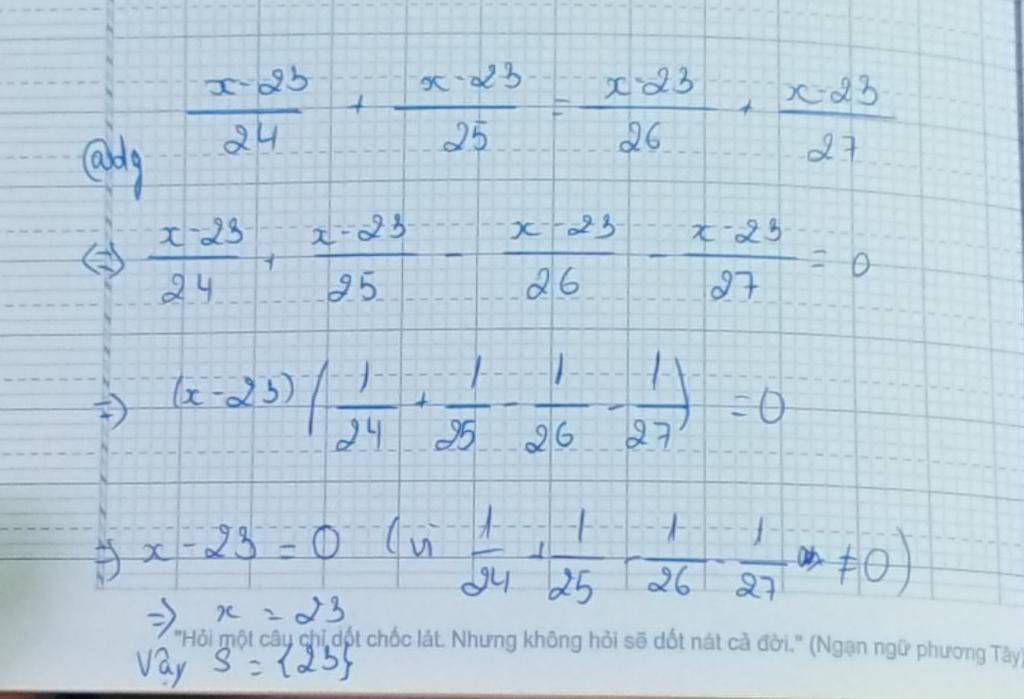 x-23/24 + x-23/25 = x-23/26 + x-23/27
@dg
⇔ x-23/24 + x-23/25 - x-23/26 - x-23/27 = 0
⇒ (x-23) (1/24 + 1/25 - 1/26 - 1/27) = 0
⇒ x-23 = 0 (vì 1/24 + 1/25 - 1/26 - 1/27 ≠ 0)
⇒ x = 23
"Hỏi một câu chỉ dốt chốc lát. Nhưng không hỏi sẽ dốt nát cả đời." (Ngạn ngữ phương Tây)
Vậy S = {23}